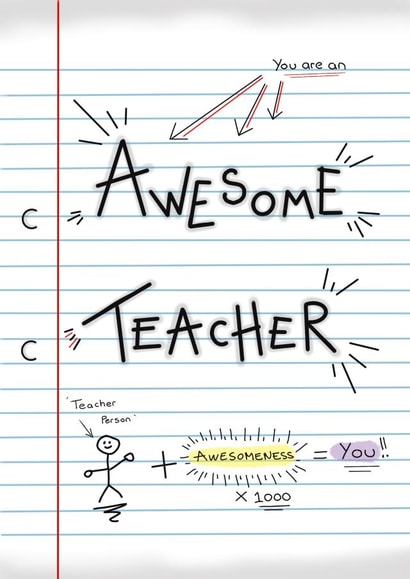 You are an
AWESOME
C
TEACHER
C
'Teacher
Person'
+ AWESOMENESS = YOU!!
x 1000